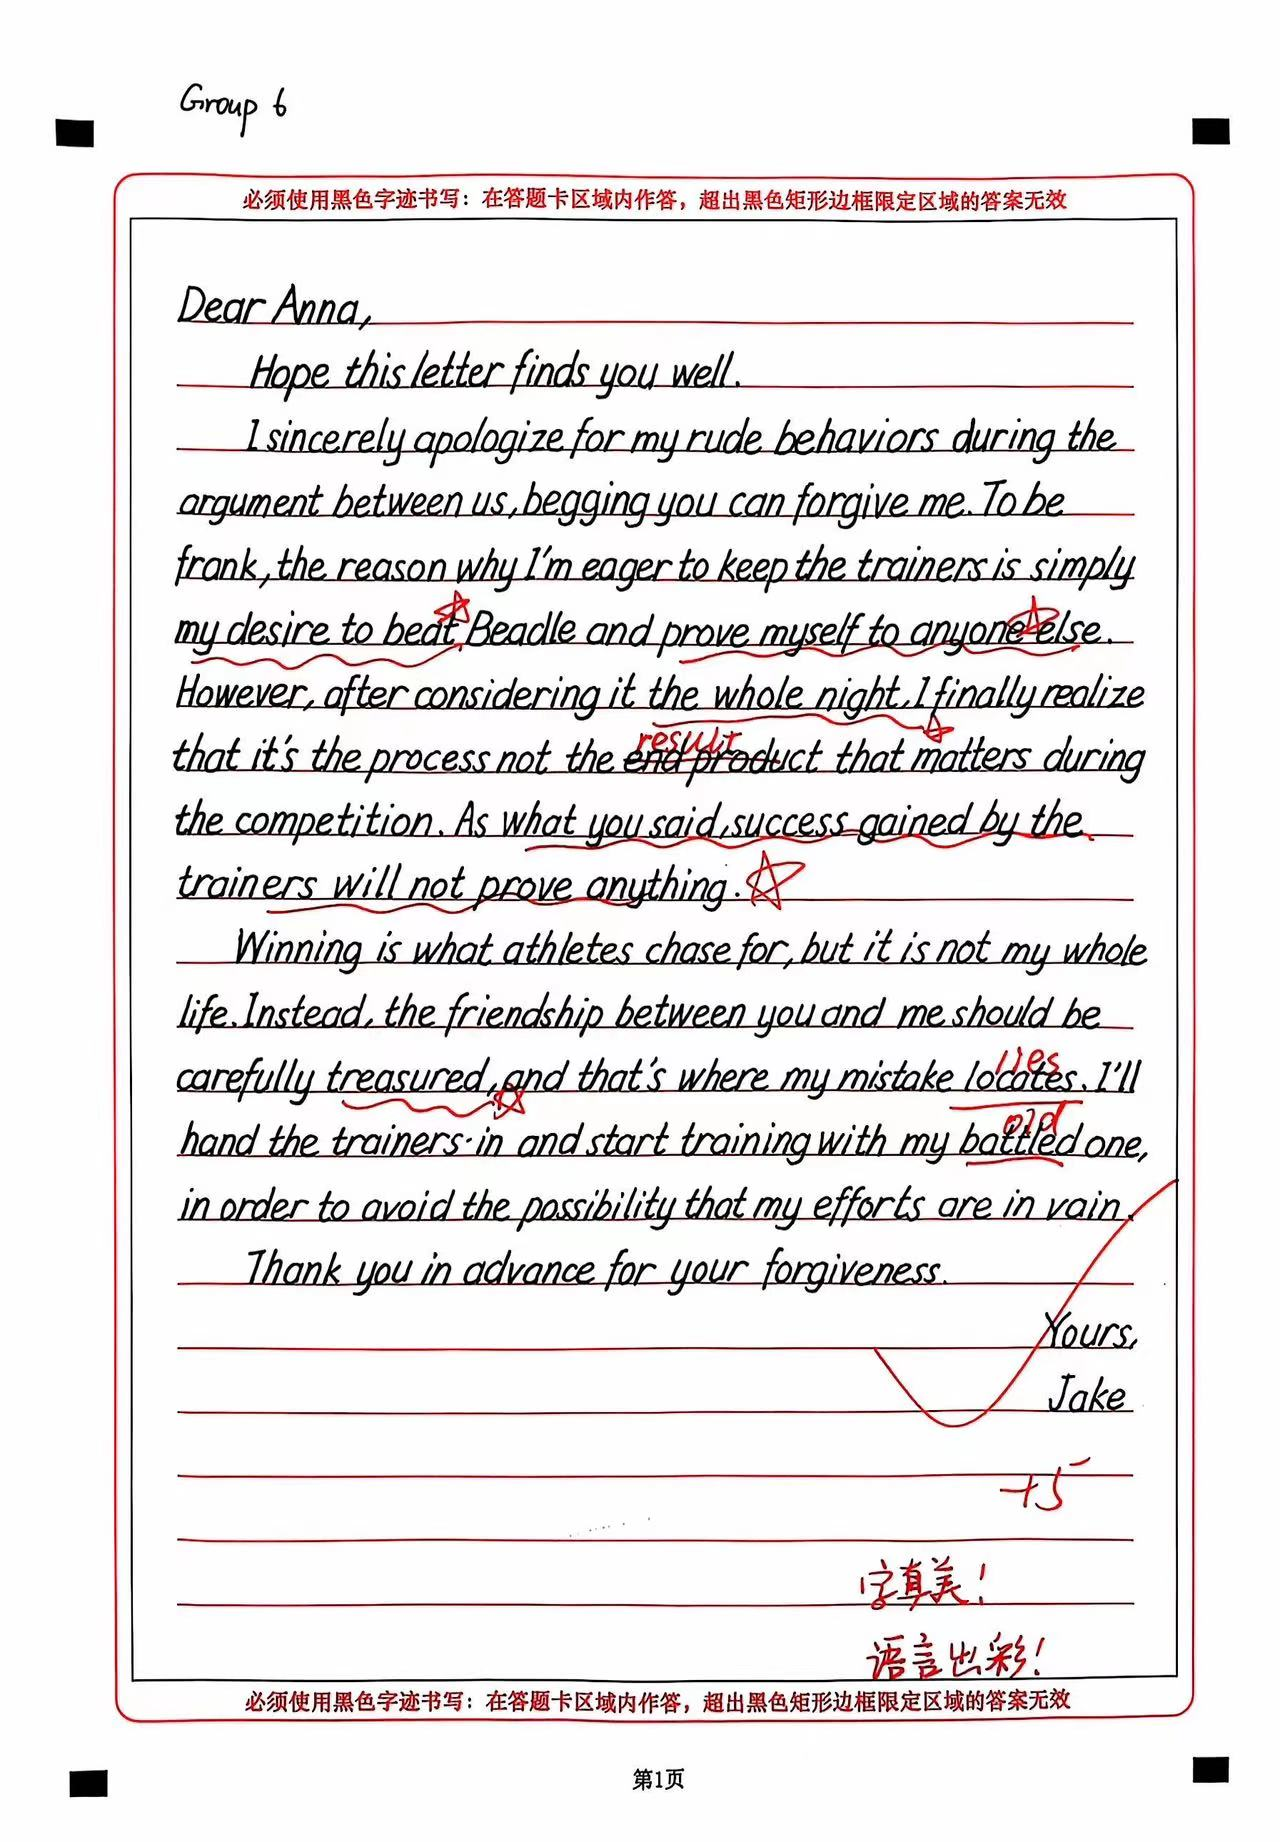 Group 6
必须使用黑色字迹书写：在答题卡区域内作答，超出黑色矩形边框限定区域的答案无效
Dear Anna,
Hope this letter finds you well.
I sincerely apologize for my rude behaviors during the
argument between us, begging you can forgive me. To be
frank, the reason why I'm eager to keep the trainers is simply
my desire to beat Beadle and prove myself to anyone else.
However, after considering it the whole night, I finally realize
result
that it's the process not the end product that matters during
the competition. As what you said, success gained by the
trainers will not prove anything.
Winning is what athletes chase for, but it is not my whole
life. Instead, the friendship between you and me should be
lies
carefully treasured, and that's where my mistake locates. I'll
old
hand the trainers in and start training with my battled one,
in order to avoid the possibility that my efforts are in vain.
Thank you in advance for your forgiveness.
Yours,
Jake
+5
字真美！
语言出彩！
必须使用黑色字迹书写：在答题卡区域内作答，超出黑色矩形边框限定区域的答案无效
第1页